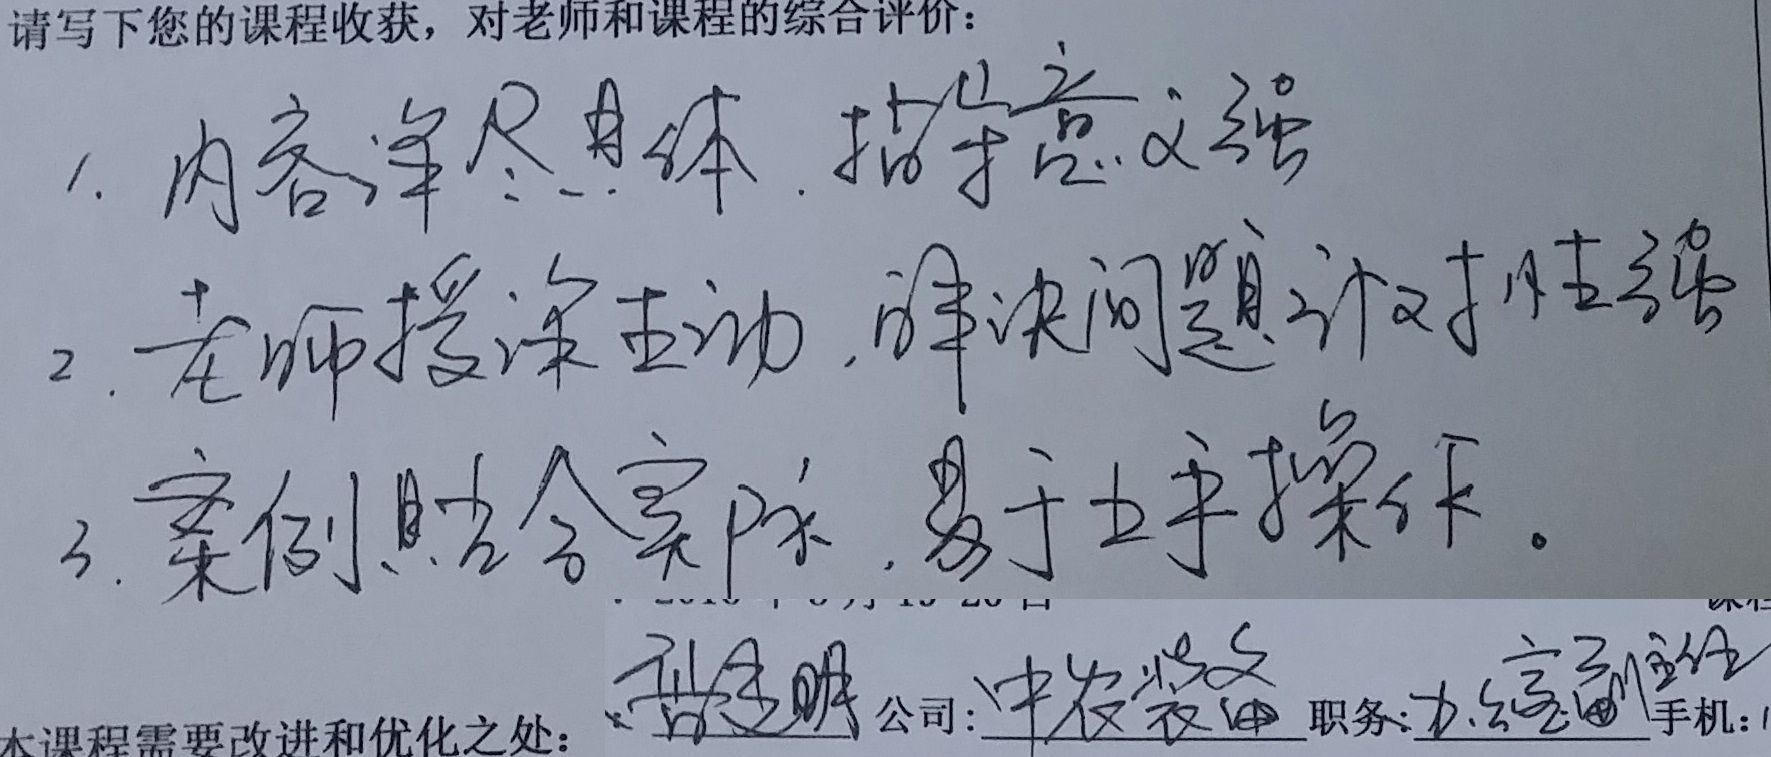 请写下您的课程收获，对老师和课程的综合评价：
1. 内容详尽具体．指导意义强
2. 老师授课生动．解决问题针对性强
3. 案例贴合实际．易于上手操作。
明 公司：中农装备 职务：办公室副主任 手机：1
本课程需要改进和优化之处：